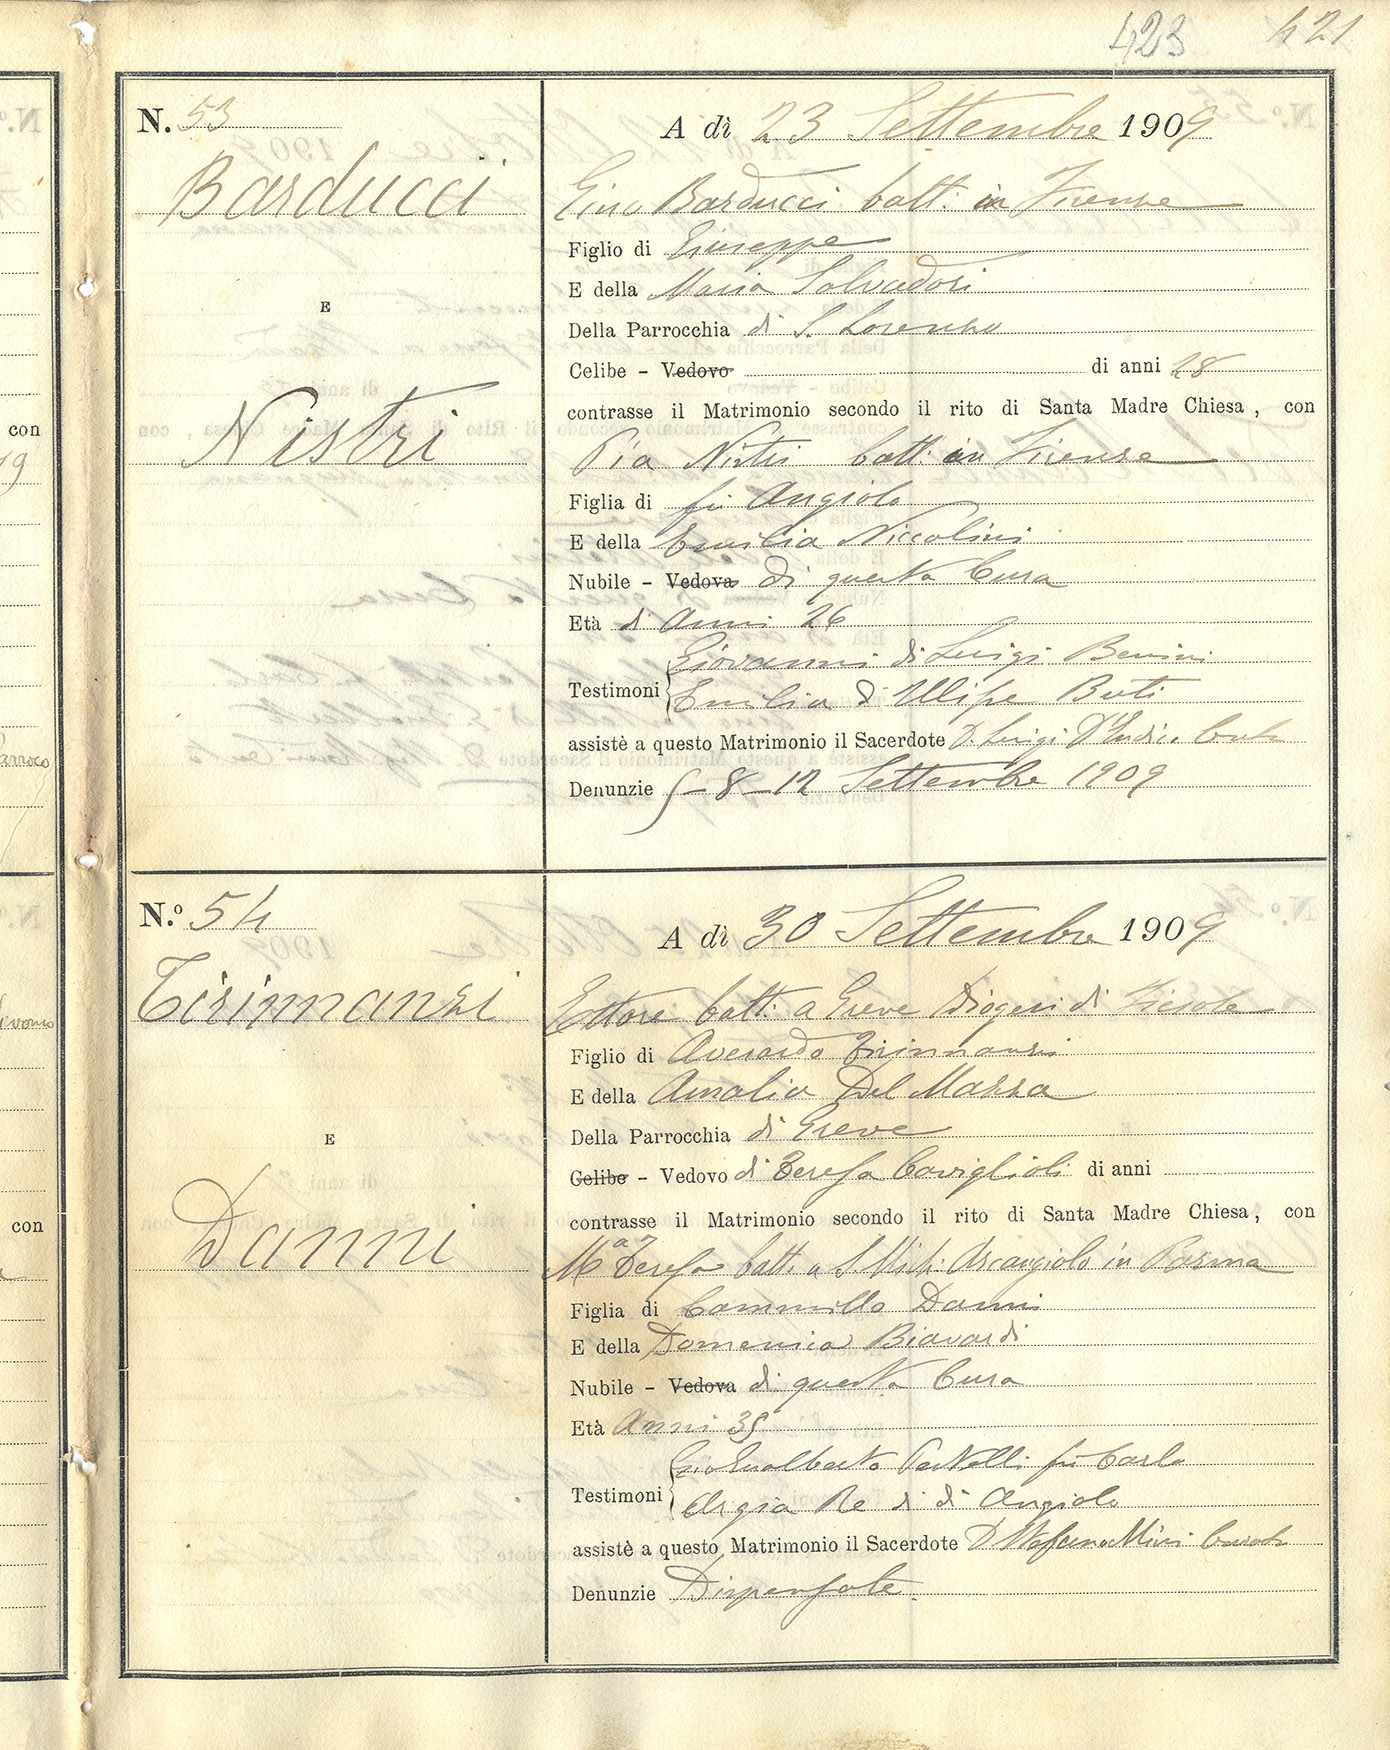 423 421
N. 53
Barducci
E
Nistri
A dì 23 Settembre 1909
Gino Barducci batt: in Firenze
Figlio di Giuseppe
E della Maria Salvadori
Della Parrocchia di S. Lorenzo
Celibe - Vedovo di anni 28
contrasse il Matrimonio secondo il rito di Santa Madre Chiesa, con
Pia Nistri batt: in Firenze
Figlia di fu Angiolo
E della Emilia Niccolini
Nubile - Vedova di questa Cura
Età d'Anni 26
Giovanni di Luigi Benini
Testimoni
Emilia di Ulisse Buti
assistè a questo Matrimonio il Sacerdote D. Luigi
Denunzie 5-8-12 Settembre 1909
N.º 54
Tirinnanzi
E
Danni
A dì 30 Settembre 1909
Ettore batt: a Greve Diogesi di Fiesole
Figlio di Averardo Tirinnanzi
E della Amalia Del Mazza
Della Parrocchia di Greve
Celibe - Vedovo di Teresa Caviglioli di anni
contrasse il Matrimonio secondo il rito di Santa Madre Chiesa, con
Mª Teresa batt: a S. Mich: Arcangiolo in Parma
Figlia di Cammillo Danni
E della Domenica Biavardi
Nubile - Vedova di questa Cura
Età Anni 35
Gio Gualberto Pastelli fu Carlo
Testimoni
Argia Re di Angiolo
assistè a questo Matrimonio il Sacerdote D Stefano Mini Curato
Denunzie Dispensate
con
con